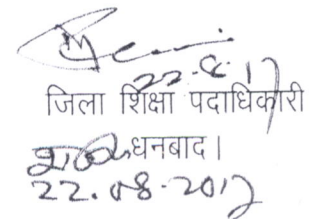 22.8.17
जिला शिक्षा पदाधिकारी
धनबाद।
22.08.2017